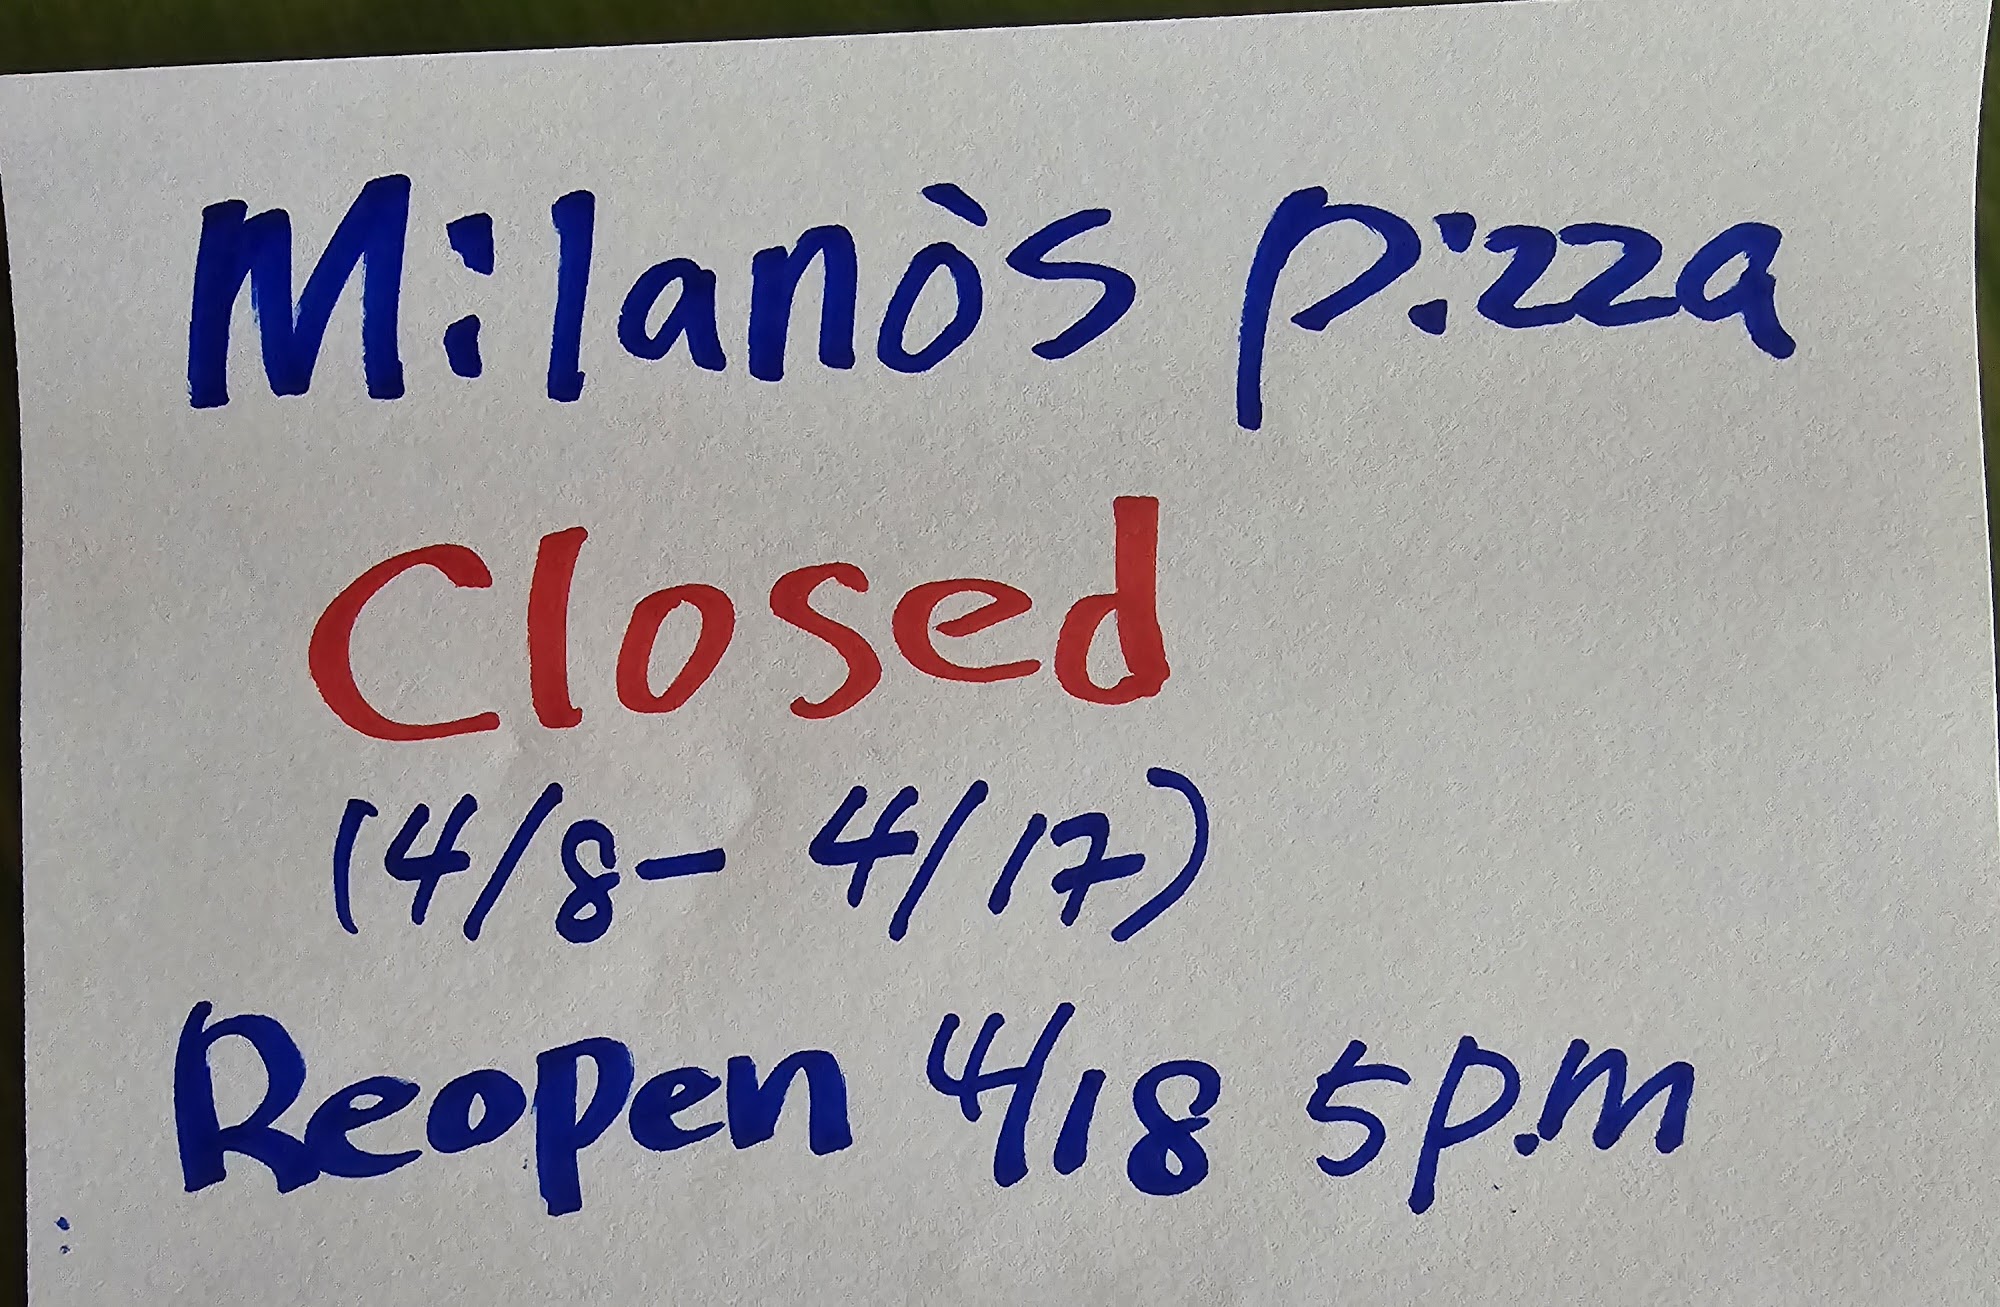 Milano's Pizza
Closed
(4/8- 4/17)
Reopen 4/18 5p.m